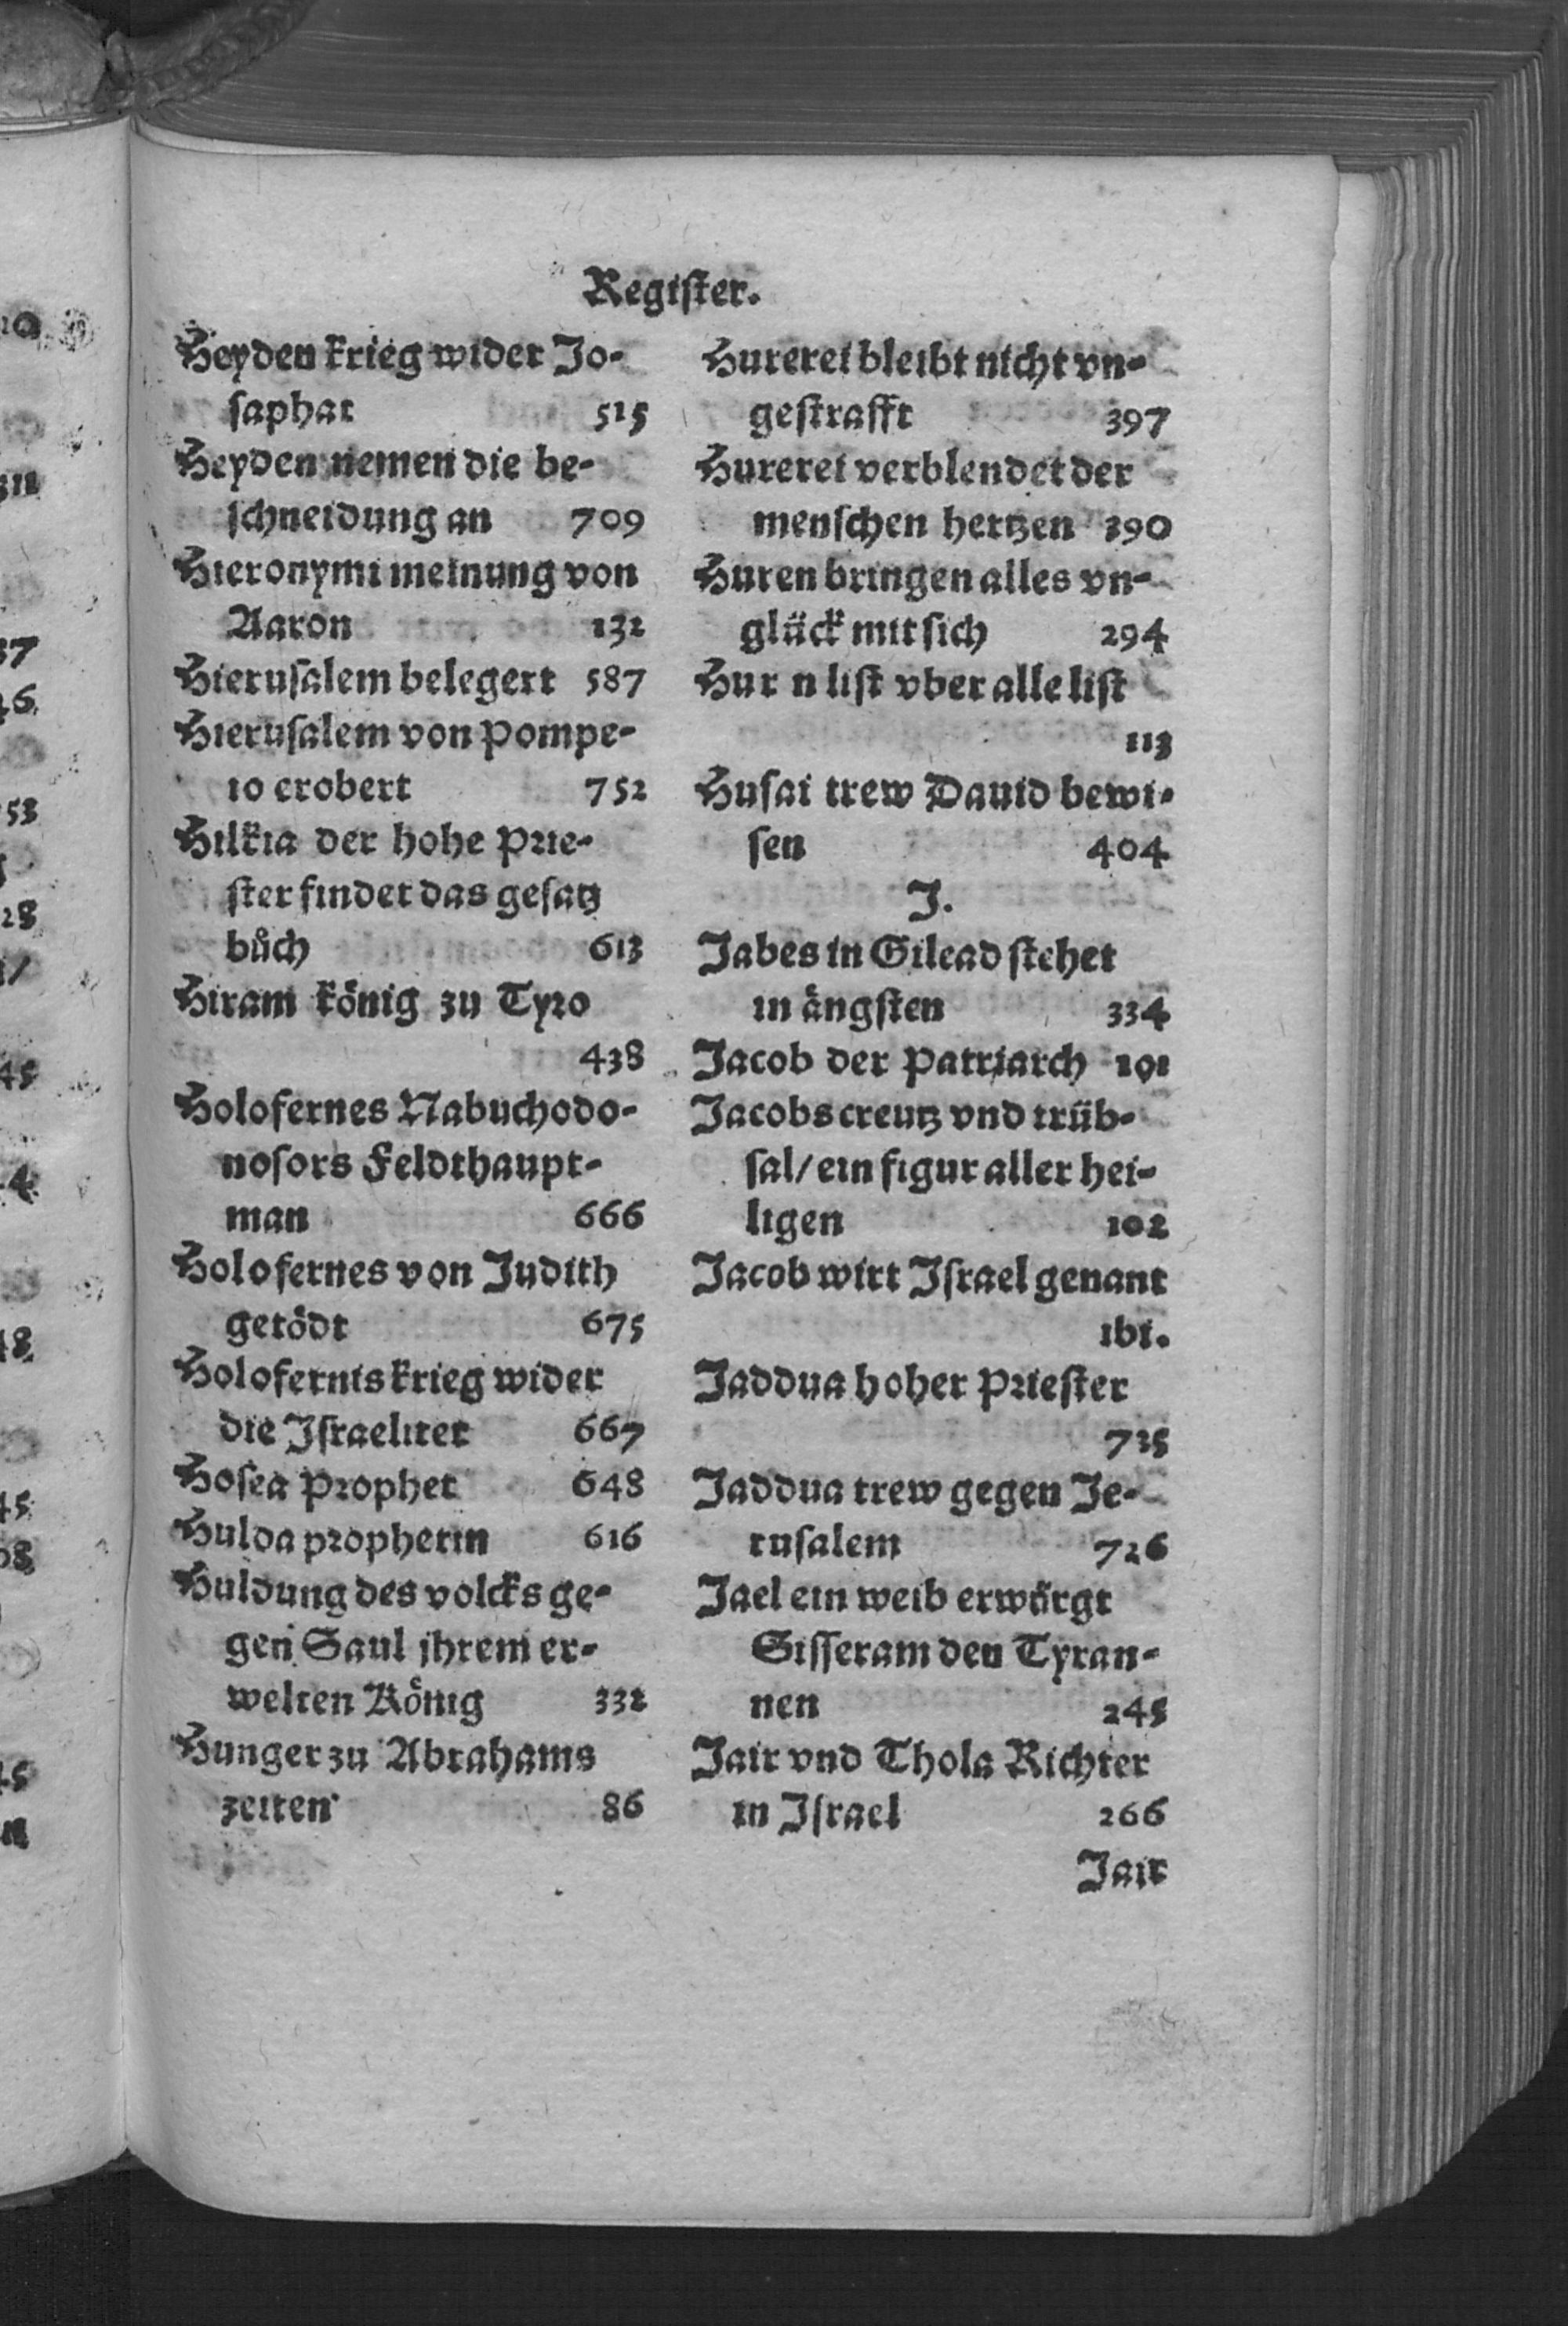 Register.
Heyden krieg wider Jo-
saphat 515
Heyden nemen die be-
schneidung an 709
Hieronymi meinung von
Aaron 132
Hierusalem belegert 587
Hierusalem von Pompe-
io erobert 752
Hilkia der hohe Prie-
ster findet das gesatz
bůch 613
Hiram könig zu Tyro
438
Holofernes Nabuchodo-
nosors Feldthaupt-
man 666
Holofernes von Judith
getödt 675
Holofernis krieg wider
die Israeliter 667
Hosea Prophet 648
Hulda prophetin 616
Huldung des volcks ge-
gen Saul jhrem er-
welten König 332
Hunger zu Abrahams
zeiten 86
Hurerei bleibt nicht vn-
gestrafft 397
Hurerei verblendet der
menschen hertzen 390
Huren bringen alles vn-
glück mit sich 294
Hur n list vber alle list
113
Husai trew Dauid bewi-
sen 404
J.
Jabes in Gilead stehet
in ängsten 334
Jacob der Patriarch 101
Jacobs creutz vnd trüb-
sal/ ein figur aller hei-
ligen 102
Jacob wirt Israel genant
ibi.
Jaddua hoher Priester
725
Jaddua trew gegen Je-
rusalem 726
Jael ein weib erwürgt
Sisseram den Tyran-
nen 245
Jair vnd Thola Richter
in Israel 266
Jair